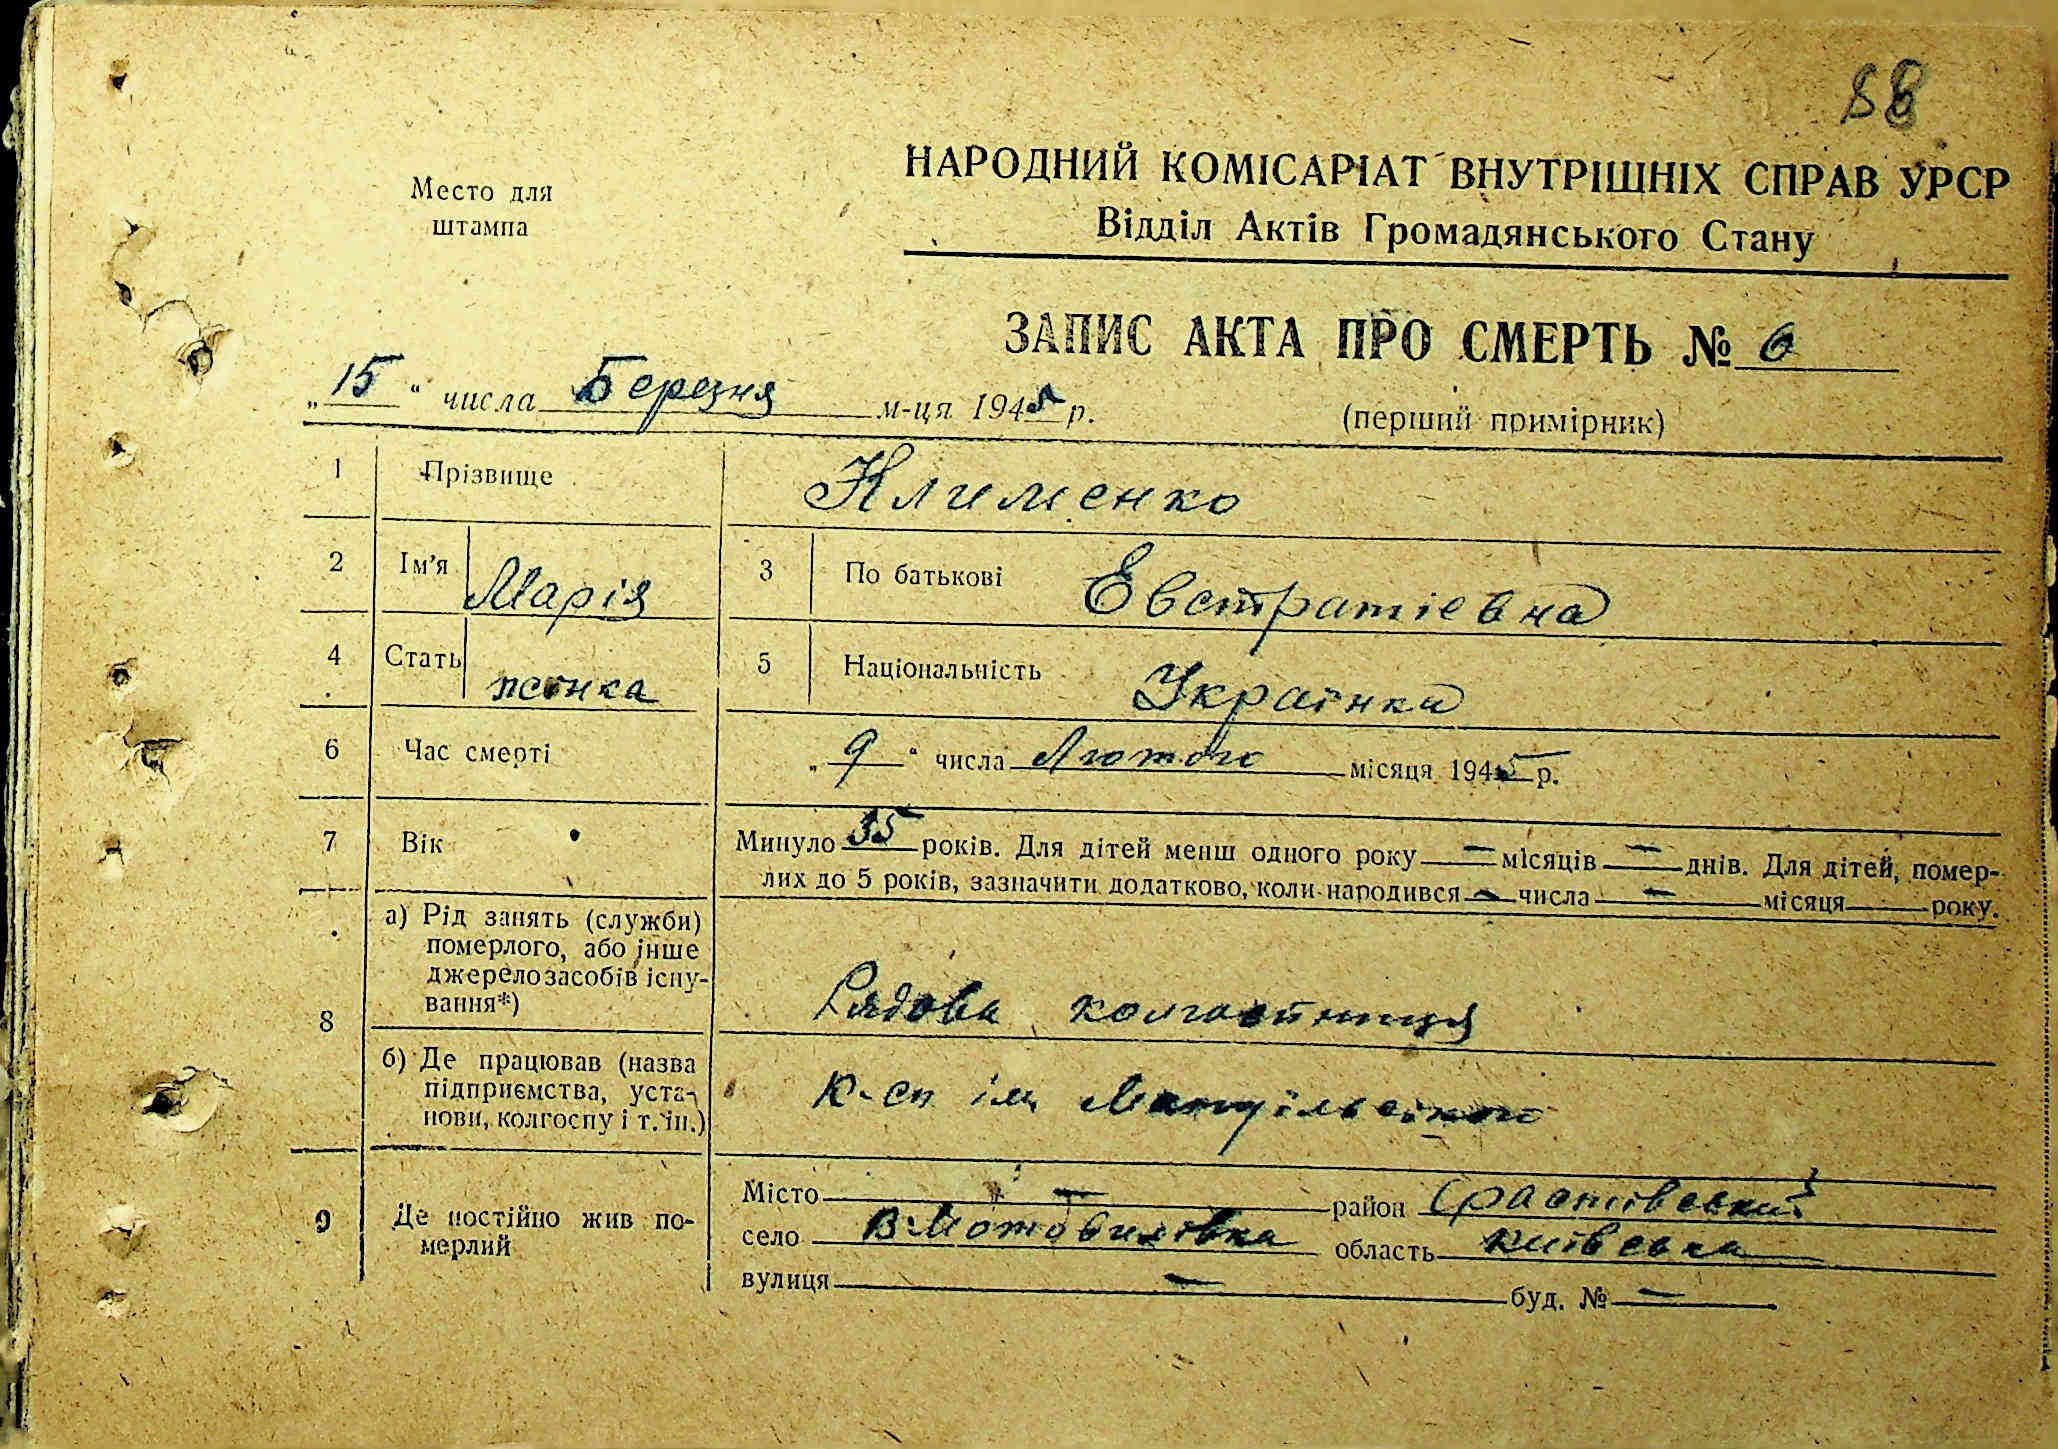 58
Место для
штампа
НАРОДНИЙ КОМІСАРІАТ ВНУТРІШНІХ СПРАВ УРСР
Відділ Актів Громадянського Стану
ЗАПИС АКТА ПРО СМЕРТЬ № 6
„15“ числа Березня м-ця 1945 р.
(перший примірник)
1 Прізвище Клименко
2 Ім'я Марія 3 По батькові Евстратіевна
4 Стать жінка 5 Національність Українка
6 Час смерті „9“ числа Лютого місяця 1945 р.
7 Вік Минуло 35 років. Для дітей менш одного року — місяців — днів. Для дітей, помер-
лих до 5 років, зазначити додатково, коли народився — числа — місяця року.
8 а) Рід занять (служби)
померлого, або інше
джерело засобів існу-
вання*)
Рядова колгоспниця
б) Де працював (назва
підприємства, уста-
нови, колгоспу і т. ін.)
к-сп ім
9 Де постійно жив по-
мерлий
Місто — район Фастівський
село В Мотовилівка область Київська
вулиця — буд. № —